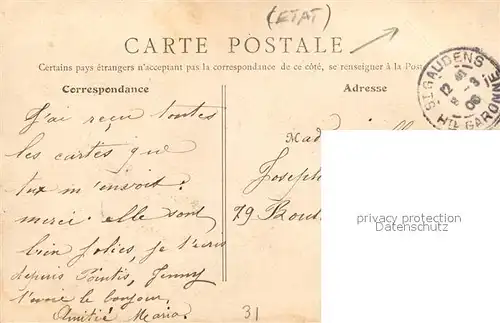 (ETAT)
CARTE POSTALE
Certains pays étrangers n'acceptant pas la correspondance de ce côté, se renseigner à la Poste
Correspondance
Adresse
ST GAUDENS
12
8 - 3
06
Hte GARONNE
J'ai reçu toutes
les cartes que
tux m'envoit:
merci. elle sont
bien jolies, je t'écris
depuis Pointis, Jenny
t'envoie le bonjour,
Amitié Maria.
Mad
Joseph
79 Rout
privacy protection
Datenschutz
31